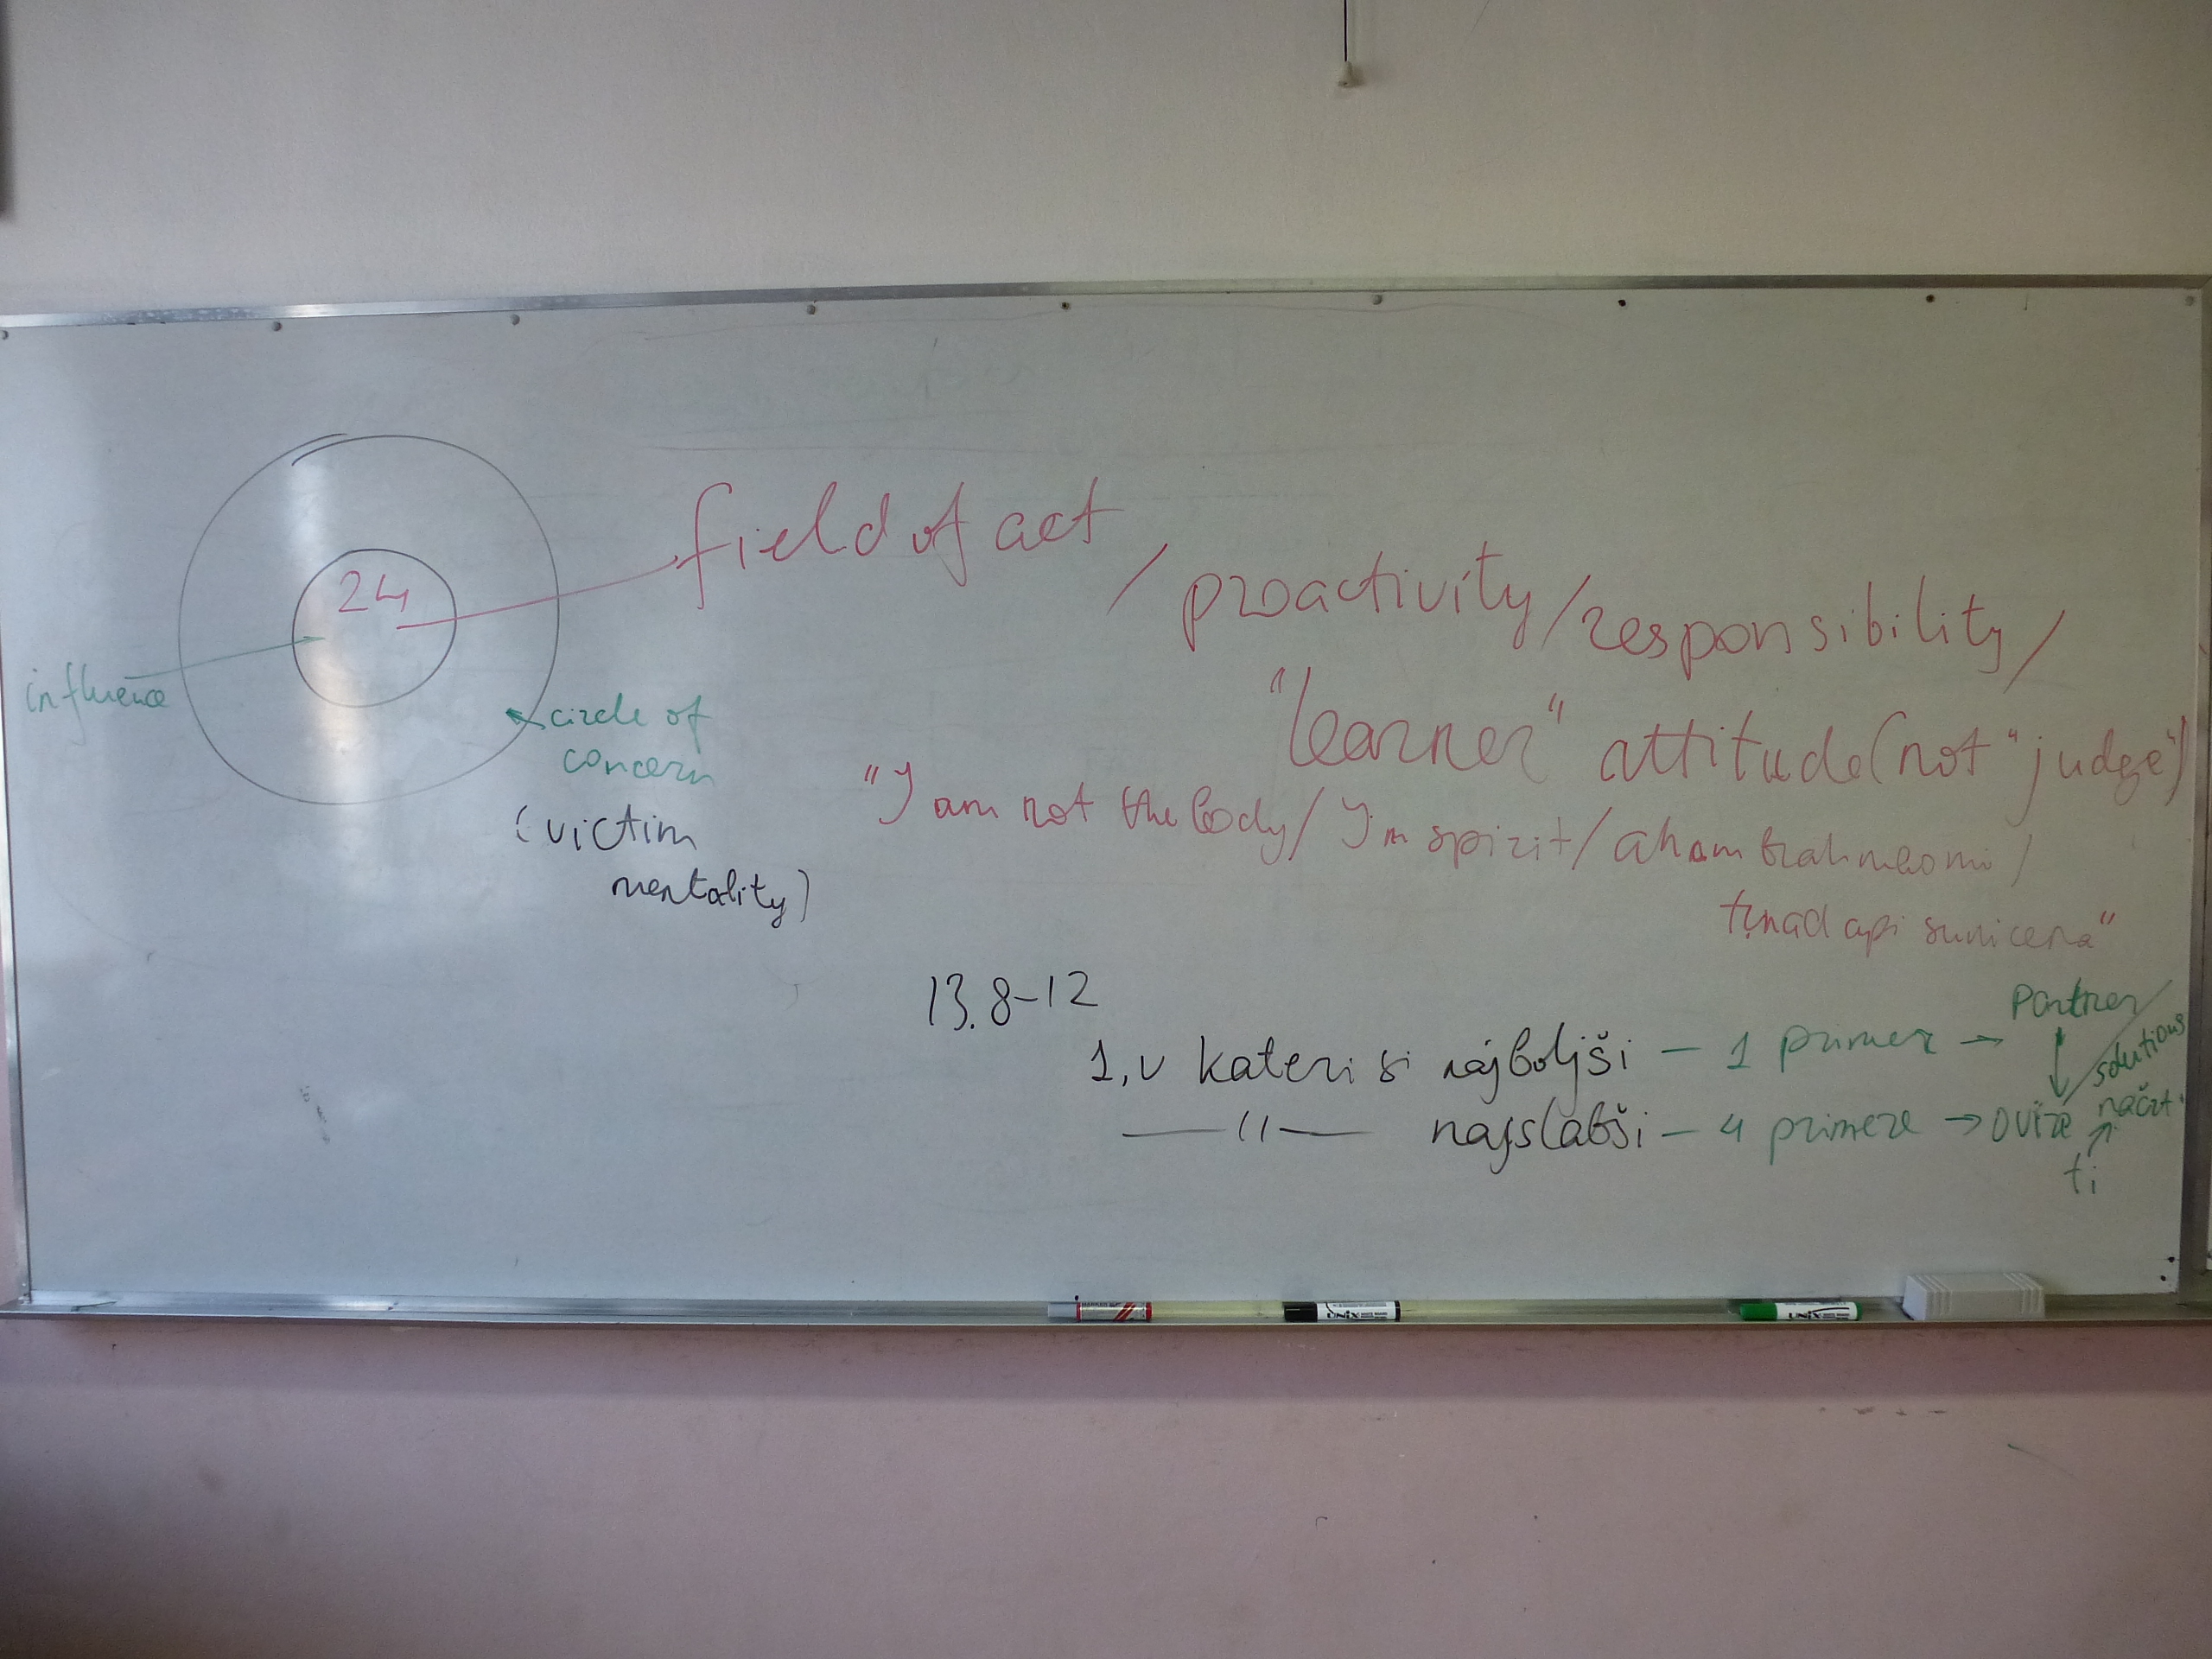 24
field of act
/ proactivity / responsibility /
"learner" attitude (not "judge")
influence
circle of
concern
(victim
mentality)
"I am not the body / I'm spirit / aham brahmasmi /
tṛnad api sunicena"
13.8-12
1. v kateri si najboljši – 1 primer →
Partner
↓
/ solutions
—— 〃 —— najslabši – 4 primere → ovire
načrt
ti
UNIX
UNIX